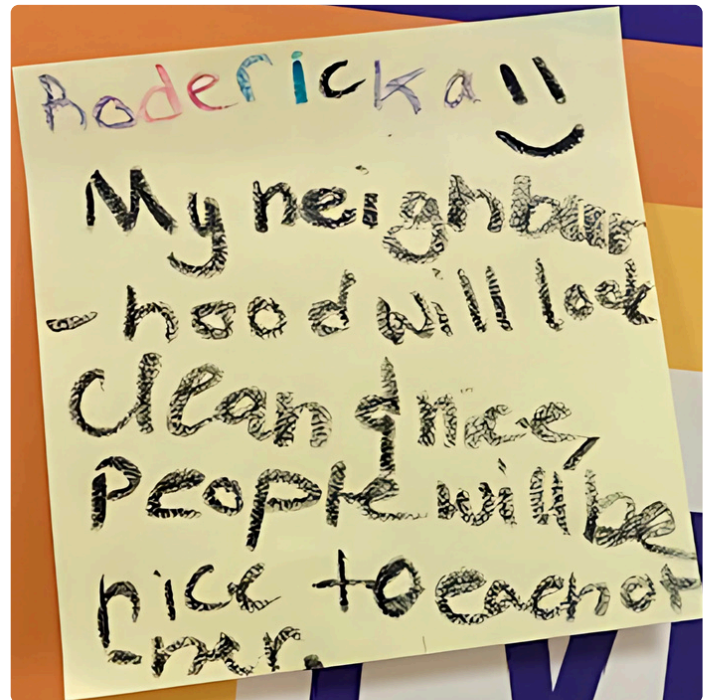 Rodericka
My neighbour
-hood will look
Clean & nice,
People will be
nice to each ot
-her.